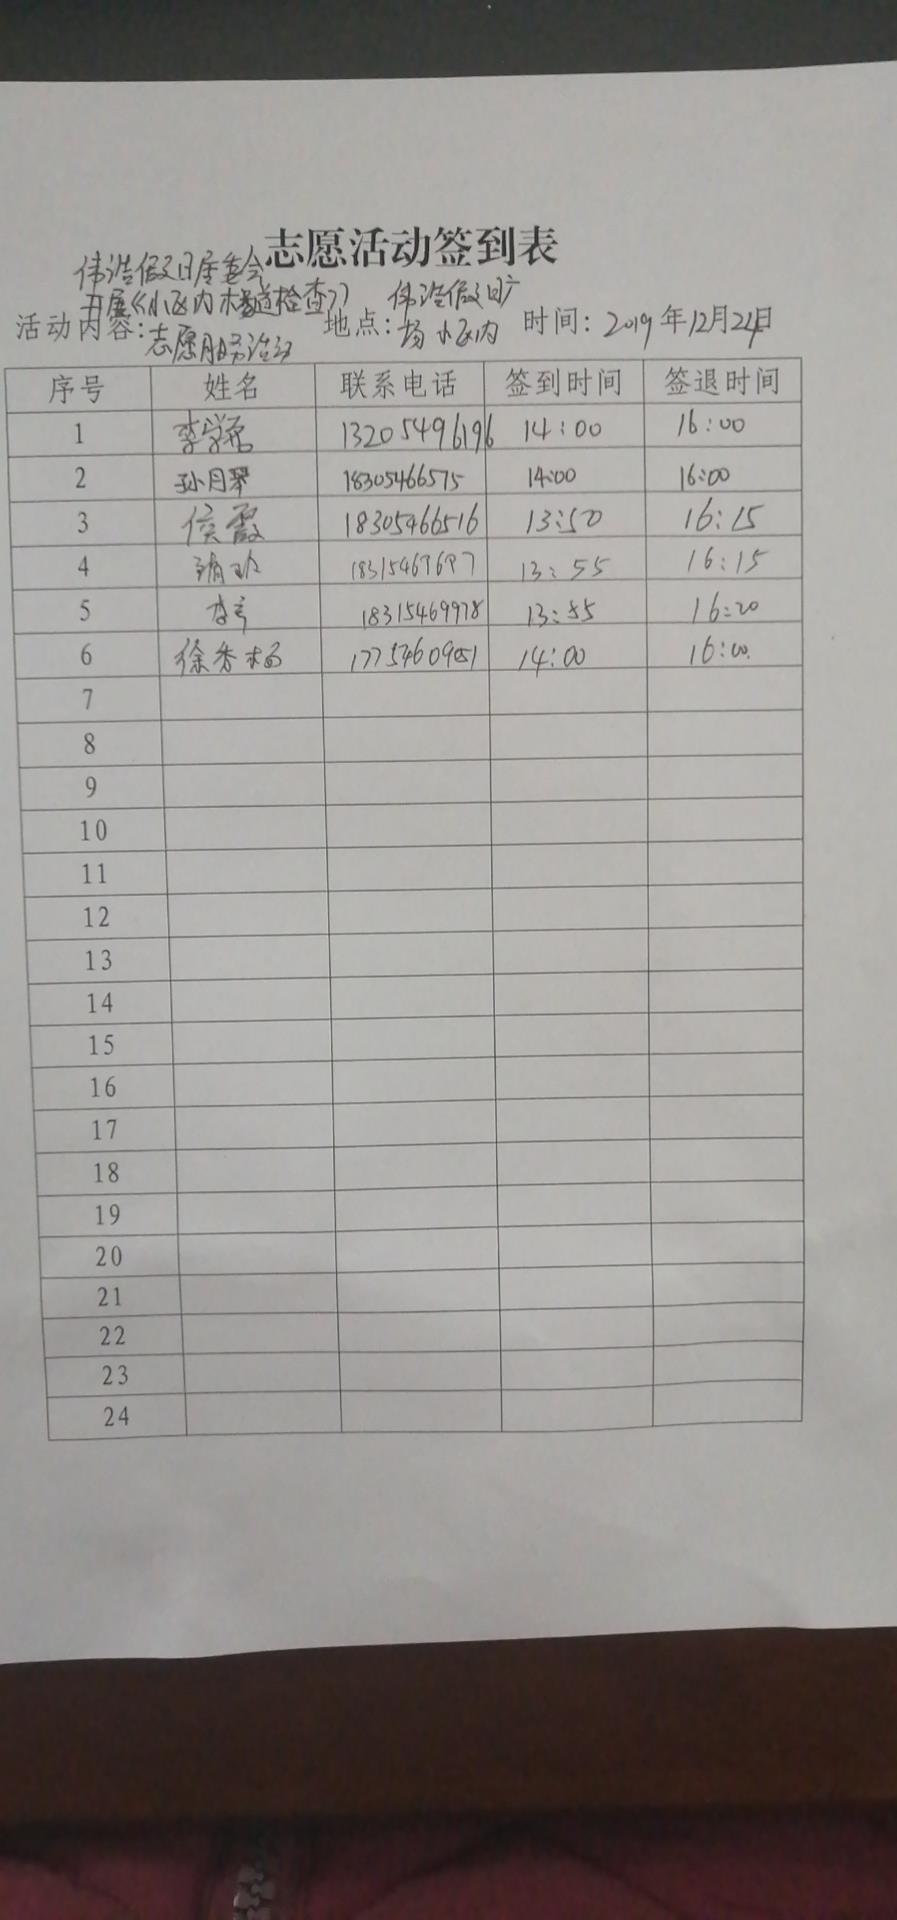 志愿活动签到表
伟浩假日居委会
开展《小区内楼道检查》 伟浩假日广
活动内容: 地点: 场小区内 时间: 2019年12月24日
志愿服务活动
序号 姓名 联系电话 签到时间 签退时间
1 13205496196 14:00 16:00
2 孙月翠 18305466575 14:00 16:00
3 侯霞 18305466516 13:50 16:15
4 13:55 16:15
5 18315469978 13:55 16:20
6 徐秀杨 17754609051 14:00 16:00.
7
8
9
10
11
12
13
14
15
16
17
18
19
20
21
22
23
24